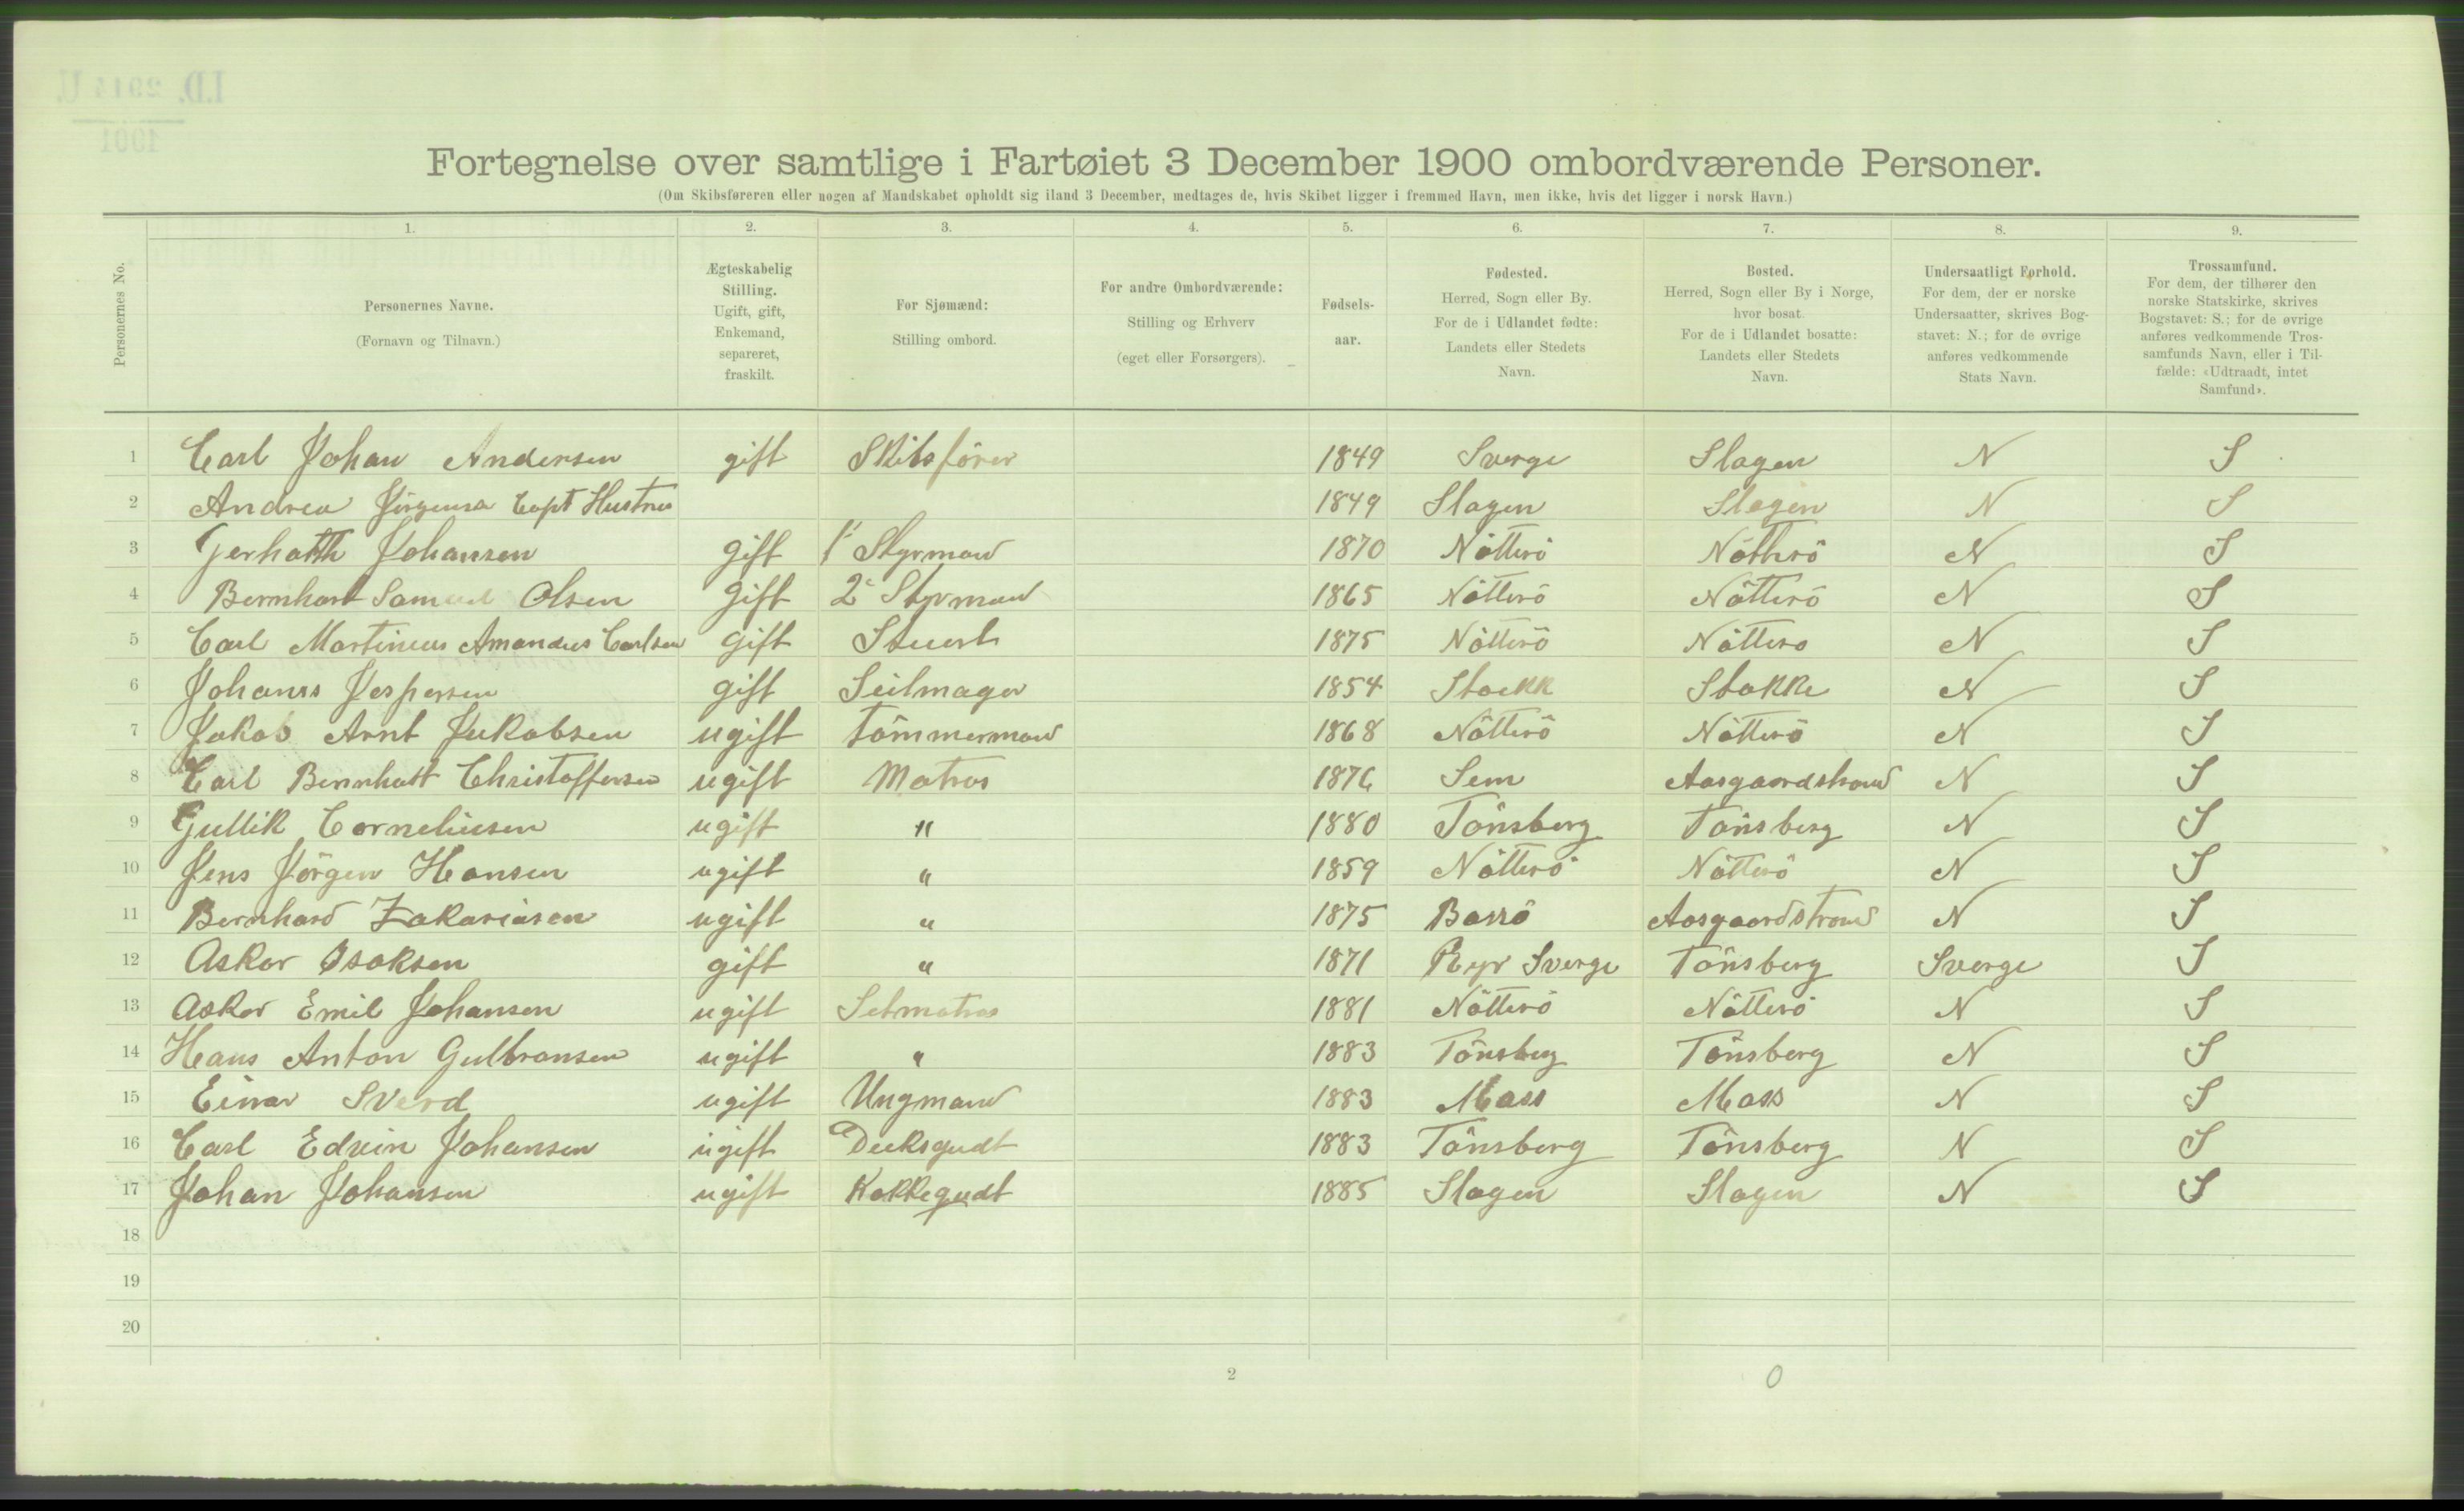 Fortegnelse over samtlige i Fartøiet 3 December 1900 ombordværende Personer.
(Om Skibsføreren eller nogen af Mandskabet opholdt sig iland 3 December, medtages de, hvis Skibet ligger i fremmed Havn, men ikke, hvis det ligger i norsk Havn.)
Personernes No.
1. 2. 3. 4. 5. 6. 7. 8. 9.
Personernes Navne.
(Fornavn og Tilnavn.)
Ægteskabelig
Stilling.
Ugift, gift,
Enkemand,
separeret,
fraskilt.
For Sjømænd:
Stilling ombord.
For andre Ombordværende:
Stilling og Erhverv
(eget eller Forsørgers).
Fødsels-
aar.
Fødested.
Herred, Sogn eller By.
For de i Udlandet fødte:
Landets eller Stedets
Navn.
Bosted.
Herred, Sogn eller By i Norge,
hvor bosat.
For de i Udlandet bosatte:
Landets eller Stedets
Navn.
Undersaatligt Forhold.
For dem, der er norske
Undersaatter, skrives Bog-
stavet: N.; for de øvrige
anføres vedkommende
Stats Navn.
Trossamfund.
For dem, der tilhører den
norske Statskirke, skrives
Bogstavet: S.; for de øvrige
anføres vedkommende Tros-
samfunds Navn, eller i Til-
fælde: «Udtraadt, intet
Samfund».
1 Carl Johan Andersen gift Skibsförer 1849 Sverge Slagen N S
2 Andrea Jörgensa Capt Hustru 1849 Slagen Slagen N S
3 Gerhatth Johansen gift 1' Styrman 1870 Nötterö Nötterö N S
4 Bernhart Samuel Olsen gift 2 Styrman 1865 Nötterö Nötterö N S
5 Carl Martinius Amandus Carlsen gift Stuert 1875 Nötterö Nöttero N S
6 Johanss Jespersen gift Seilmager 1854 Stokk Stokke N S
7 Jakob Arnt Jakobsen ugift Tömmerman 1868 Nötterö Nötterö N S
8 Carl Bernhatt Christoffersen ugift Matros 1876 Sem Aasgaardstrand N S
9 Gullik Corneliusen ugift " 1880 Tönsberg Tönsberg N S
10 Jens Jörgen Hansen ugift " 1859 Nötterö Nötterö N S
11 Bernhard Zakariasen ugift " 1875 Borrö Aasgaardstrand N S
12 Askar Isaksen gift " 1871 Ryr Sverge Tönsberg Sverge S
13 Askar Emil Johansen ugift Letmatros 1881 Nötterö Nötterö N S
14 Hans Anton Gulbransen ugift " 1883 Tönsberg Tönsberg N S
15 Einar Sverd ugift Ungmand 1883 Moss Moss N S
16 Carl Edvin Johansen ugift Deeksgudt 1883 Tönsberg Tönsberg N S
17 Johan Johansen ugift Kokkegudt 1885 Slagen Slagen N S
18
19
20
2
0